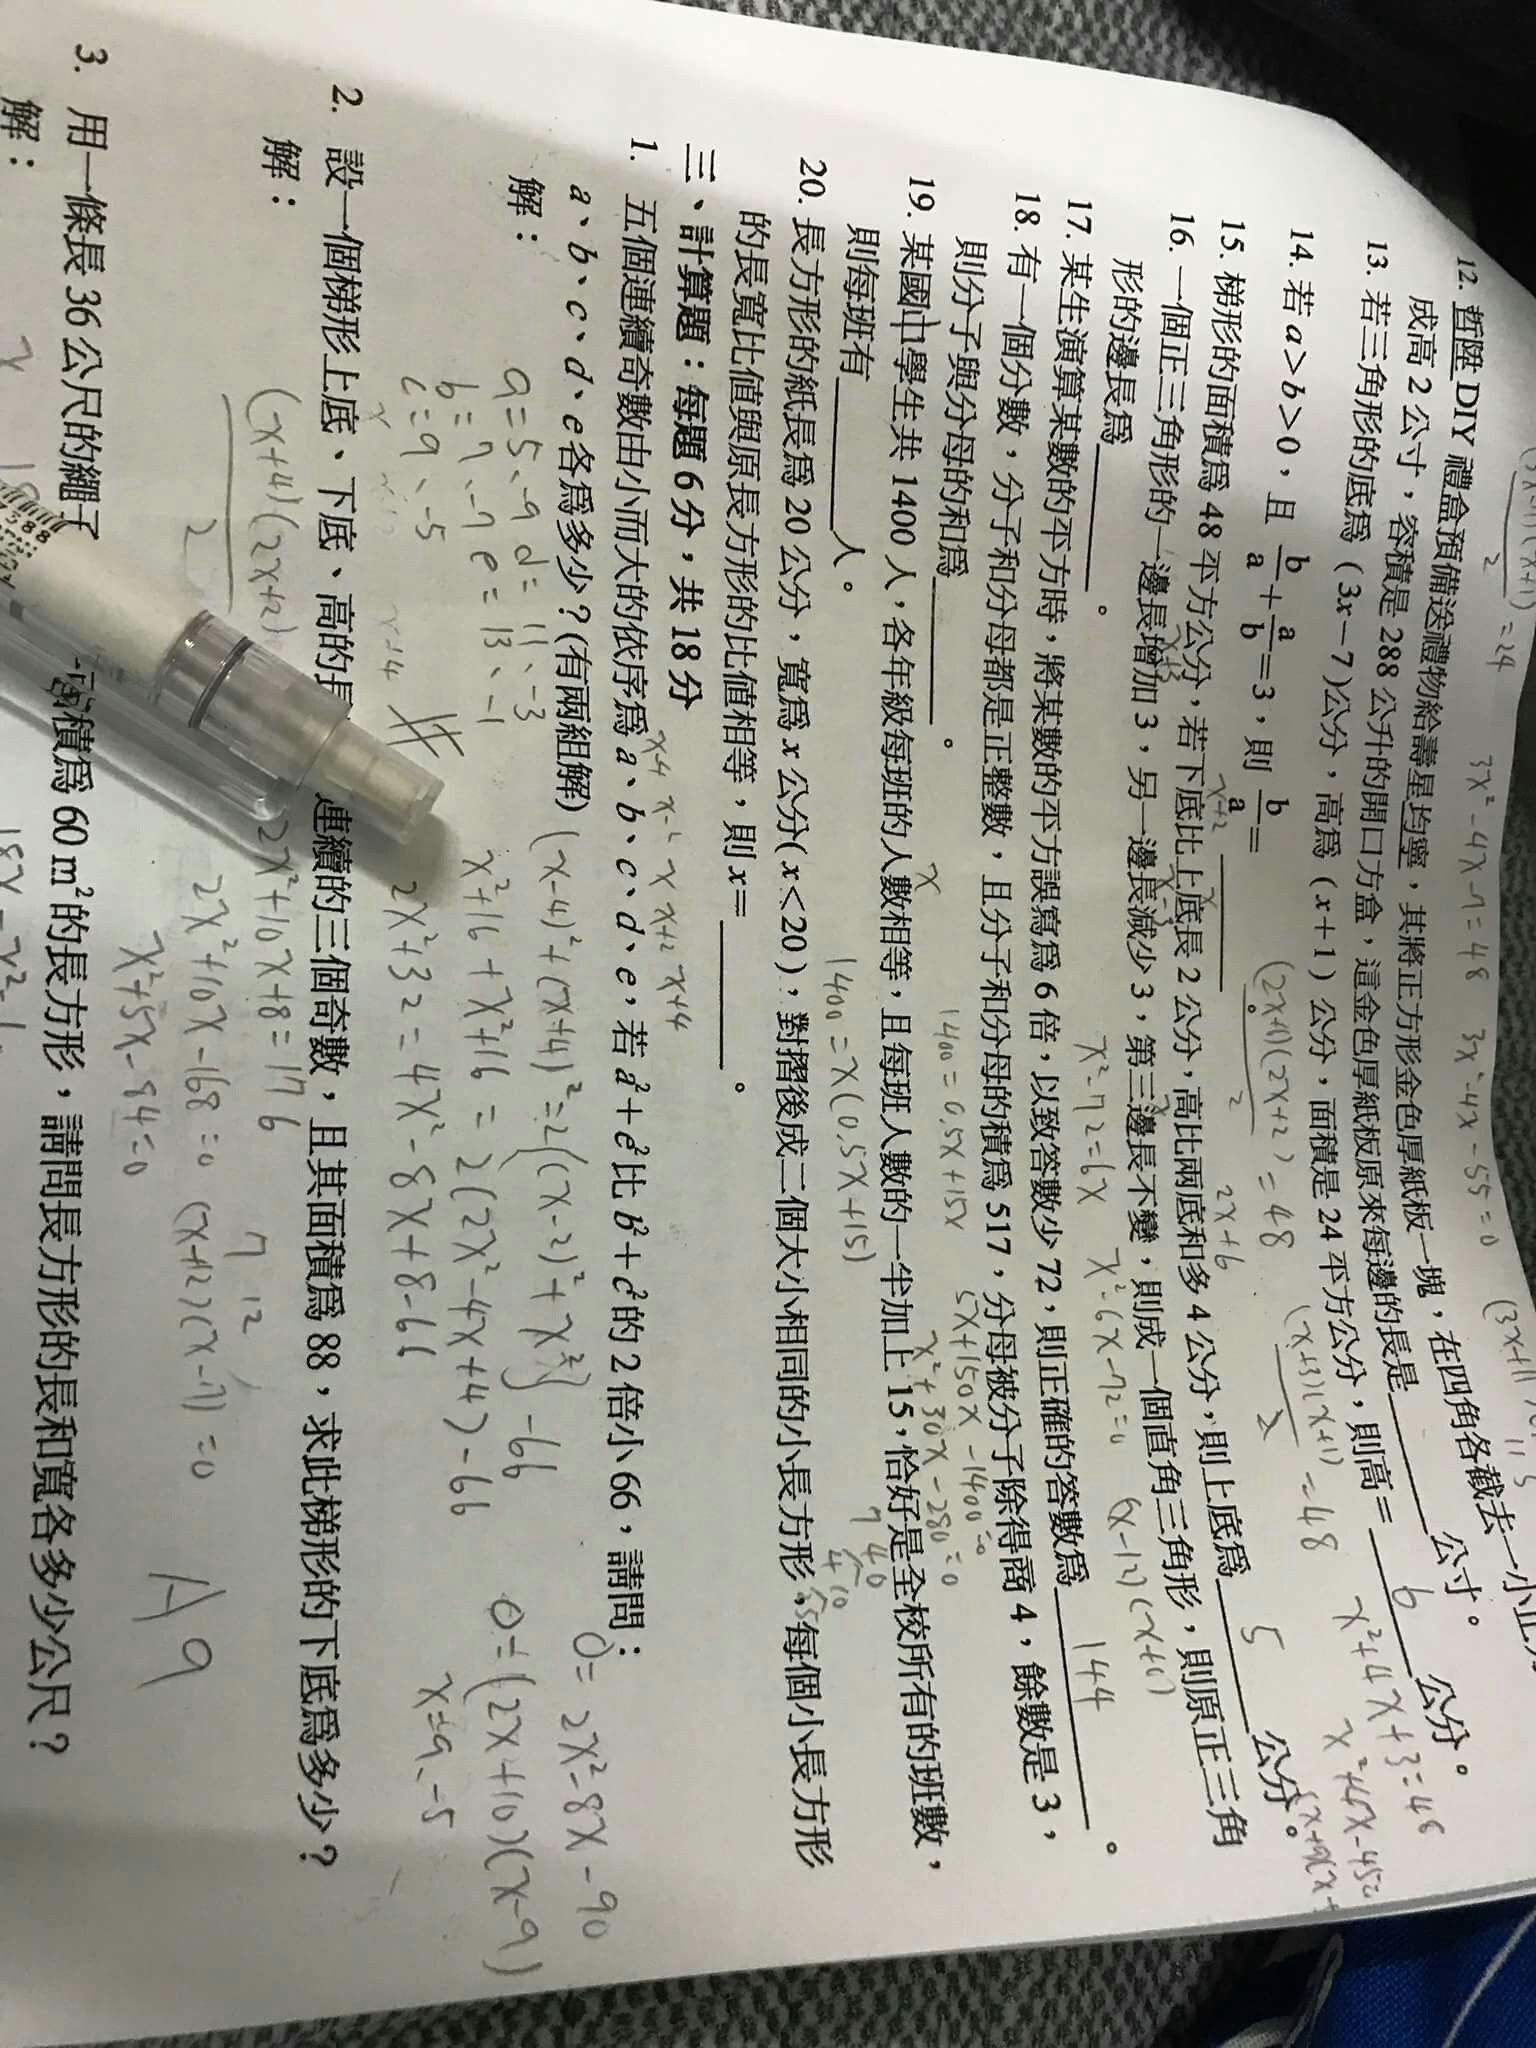 3x²-4x-7=48 3x²-4x-55=0
2
=24
12. 哲陞 DIY 禮盒預備送禮物給壽星均寧，其將正方形金色厚紙板一塊，在四角各截去一小正方
成高 2 公寸，容積是 288 公升的開口方盒，這金色厚紙板原來每邊的長是 公寸。
13. 若三角形的底為 (3x－7)公分，高為 (x＋1) 公分，面積是 24 平方公分，則高＝ 6 公分。
x²+4x+3=48
14. 若 a＞b＞0，且 b/a＋a/b＝3，則 b/a＝
(2x+1)(2x+2)=48
2
(x+3)(x+1)=48
2
x²+4x-45=
x+2 x 2x+6
15. 梯形的面積為 48 平方公分，若下底比上底長 2 公分，高比兩底和多 4 公分，則上底為 5 公分。
x+3 x-3 x
16. 一個正三角形的一邊長增加 3，另一邊長減少 3，第三邊長不變，則成一個直角三角形，則原正三角
形的邊長為 。
x²-72=6x x²-6x-72=0
17. 某生演算某數的平方時，將某數的平方誤寫為 6 倍，以致答數少 72，則正確的答數為 144 。
18. 有一個分數，分子和分母都是正整數，且分子和分母的積為 517，分母被分子除得商 4，餘數是 3，
則分子與分母的和為 。
1400=0.5x+15x 5x+150x-1400=0
x x²+30x-280=0
19. 某國中學生共 1400 人，各年級每班的人數相等，且每班人數的一半加上 15，恰好是全校所有的班數，
則每班有 人。
1400=x(0.5x+15)
20. 長方形的紙長為 20 公分，寬為 x 公分(x＜20)，對摺後成二個大小相同的小長方形，每個小長方形
的長寬比值與原長方形的比值相等，則 x＝ 。
三、計算題：每題 6 分，共 18 分
x-4 x-2 x x+2 x+4
1. 五個連續奇數由小而大的依序為 a、b、c、d、e，若 a²＋e²比 b²＋c²的 2 倍小 66，請問：
a、b、c、d、e 各為多少？(有兩組解)
解：
(x-4)²+(x+4)²=2{(x-2)²+x²}-66
0=2x²-8x-90
a=5、-9 d=11、-3
x²+16+x²+16=2(2x²-4x+4)-66
0=(2x+10)(x-9)
b=7、-7 e=13、-1
c=9、-5
2x²+32=4x²-8x+8-66
x=9、-5
2. 設一個梯形上底、下底、高的長 連續的三個奇數，且其面積為 88，求此梯形的下底為多少？
解：
(x+4)(2x+2)
2
2x²+10x+8=176
2x²+10x-168=0 (x+12)(x-7)=0
7 12
x²+5x-84=0
A 9
3. 用一條長 36 公尺的繩子 面積為 60 m²的長方形，請問長方形的長和寬各多少公尺？
解：